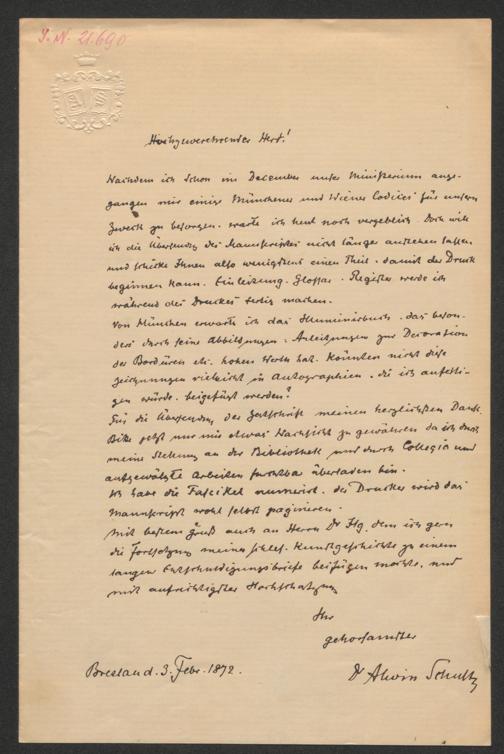 J. N. 21.690
Hochzuverehrender Herr!
Nachdem ich schon im December unser Ministerium ange-
gangen mir einige Münchener und Wiener Codices für unsern
Zweck zu besorgen, warte ich heut noch vergeblich. Doch will
ich die Übersendung des Manuskriptes nicht länger anstehen lassen
und schicke Ihnen also wenigstens einen Theil, damit der Druck
beginnen kann. Einleitung, Glossar, Register werde ich
während des Druckes fertig machen.
Von München erwarte ich das Illuminirbuch, das beson-
ders durch seine Abbildungen, Anleitungen zur Decoration
der Bordüren etc. hohen Werth hat. Könnten nicht diese
Zeichnungen vielleicht in Autographien, die ich anferti-
gen würde, beigefügt werden?
Für die Übersendung der Zeitschrift meinen herzlichsten Dank.
Bitte jetzt nur mir etwas Nachsicht zu gewähren da ich durch
meine Stellung an der Bibliothek und durch Collegia und
Arbeiten furchtbar überladen bin.
Ich habe die Fascikel numerirt, der Drucker wird das
Manuskript wohl selbst paginiren.
Mit bestem Gruß auch an Herrn Dr Ilg, dem ich gern
die Fortsetzung meiner schles. Kunstgeschichte zu einem
langen Entschuldigungsbriefe beifügen möchte, und
mit aufrichtigster Hochschätzung
Ihr
gehorsamster
Breslau. 3. Febr. 1872.
Dr Alwin Schultz